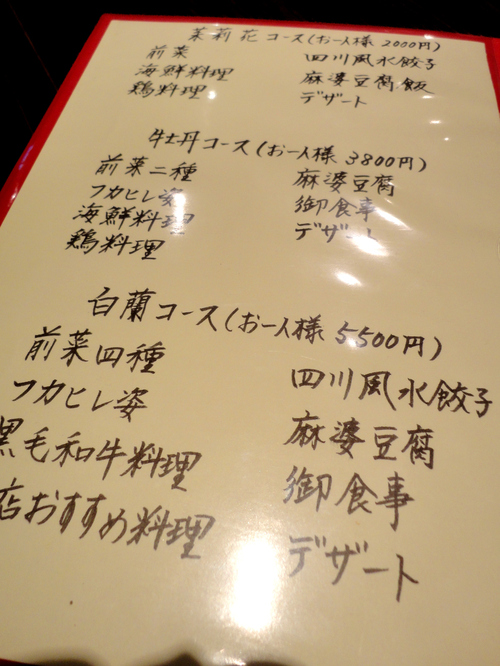 茉莉花コース(お一人様 2000円)
前菜
海鮮料理
鶏料理
四川風水餃子
麻婆豆腐飯
デザート
牡丹コース(お一人様 3800円)
前菜二種
フカヒレ姿
海鮮料理
鶏料理
麻婆豆腐
御食事
デザート
白蘭コース(お一人様 5,500円)
前菜四種
フカヒレ姿
黒毛和牛料理
店おすすめ料理
四川風水餃子
麻婆豆腐
御食事
デザート